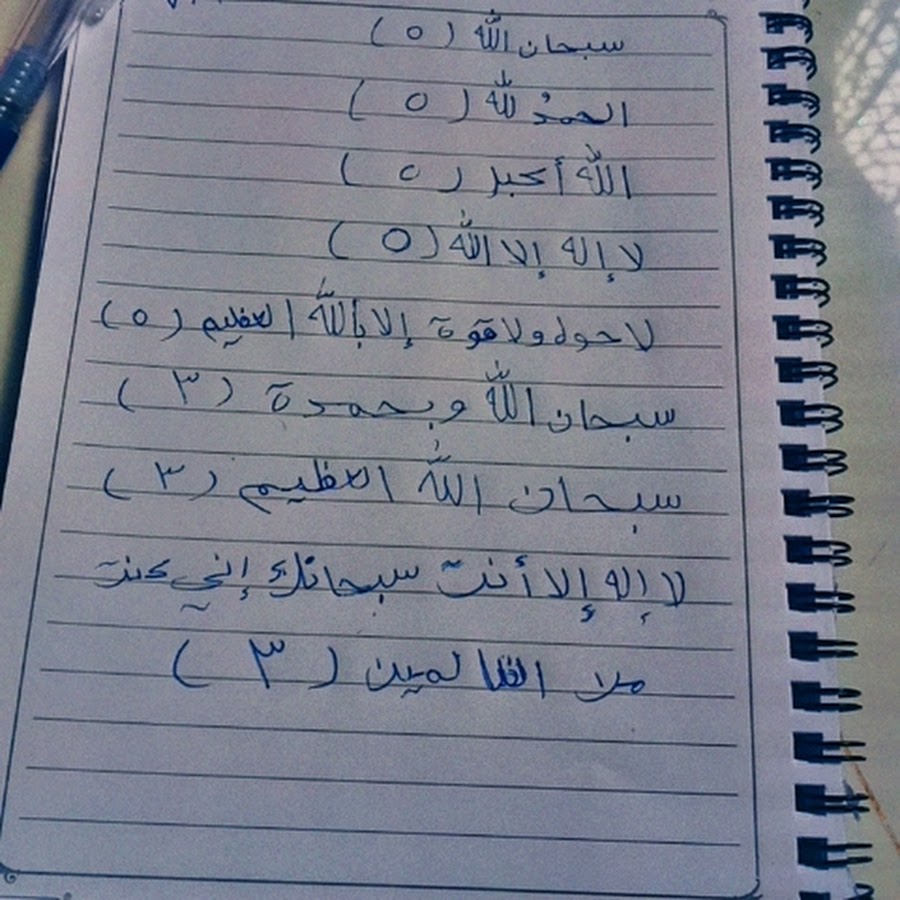 سبحان الله (٥)
الحمدُ لله (٥)
الله أكبر (٥)
لا إله إلا الله (٥)
لا حول ولا قوة إلا بالله العظيم (٥)
سبحان الله وبحمدة (٣)
سبحان الله العظيم (٣)
لا إله إلا أنت سبحانك إني كنت
من الظالمين (٣)